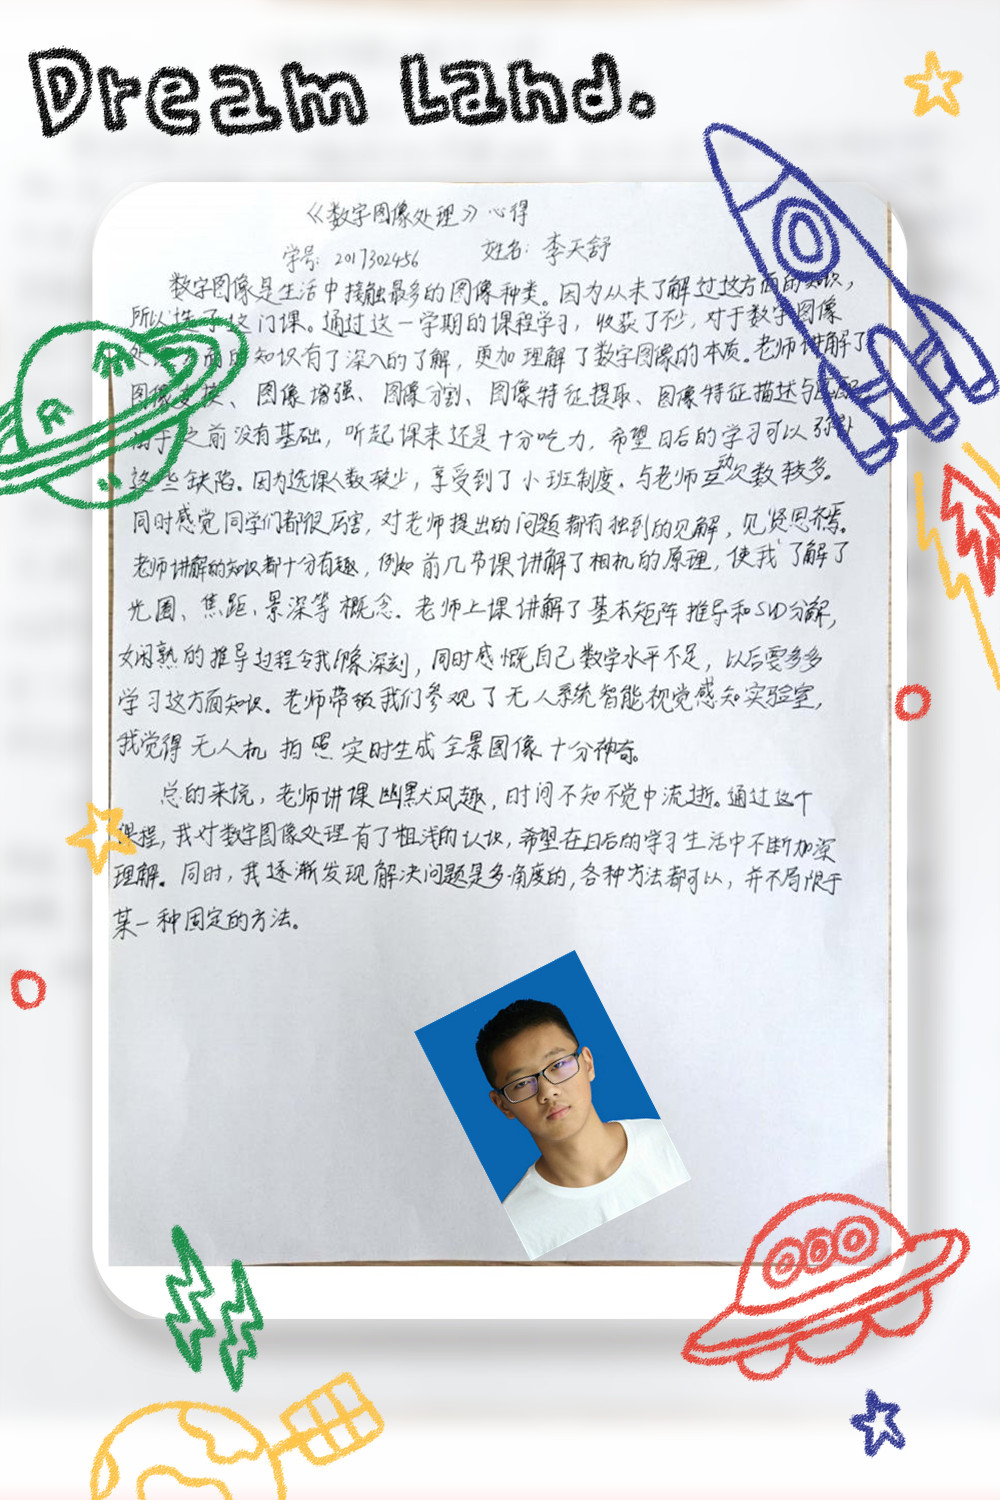 Dream Land.
《数字图像处理》心得
学号: 2017302456 姓名: 李天舒
数字图像是生活中接触最多的图像种类。因为从未了解过这方面的知识,
所以选了这门课。通过这一学期的课程学习,收获了不少,对于数字图像
处理方面的知识有了深入的了解,更加理解了数字图像的本质。老师讲解了
图像变换、图像增强、图像分割、图像特征提取、图像特征描述与匹配
由于之前没有基础,听起课来还是十分吃力,希望日后的学习可以弥补
这些缺陷。因为选课人数较少,享受到了小班制度。与老师互动次数较多。
同时感觉同学们都很厉害,对老师提出的问题都有独到的见解,见贤思齐焉。
老师讲解的知识都十分有趣,例如前几节课讲解了相机的原理,使我了解了
光圈、焦距、景深等概念。老师上课讲解了基本矩阵推导和SVD分解,
娴熟的推导过程令我印象深刻,同时感慨自己数学水平不足,以后要多多
学习这方面知识。老师带领我们参观了无人系统智能视觉感知实验室,
我觉得无人机拍照实时生成全景图像十分神奇。
总的来说,老师讲课幽默风趣,时间不知不觉中流逝。通过这个
课程,我对数字图像处理有了粗浅的认识,希望在日后的学习生活中不断加深
理解。同时,我逐渐发现解决问题是多角度的,各种方法都可以,并不局限于
某一种固定的方法。